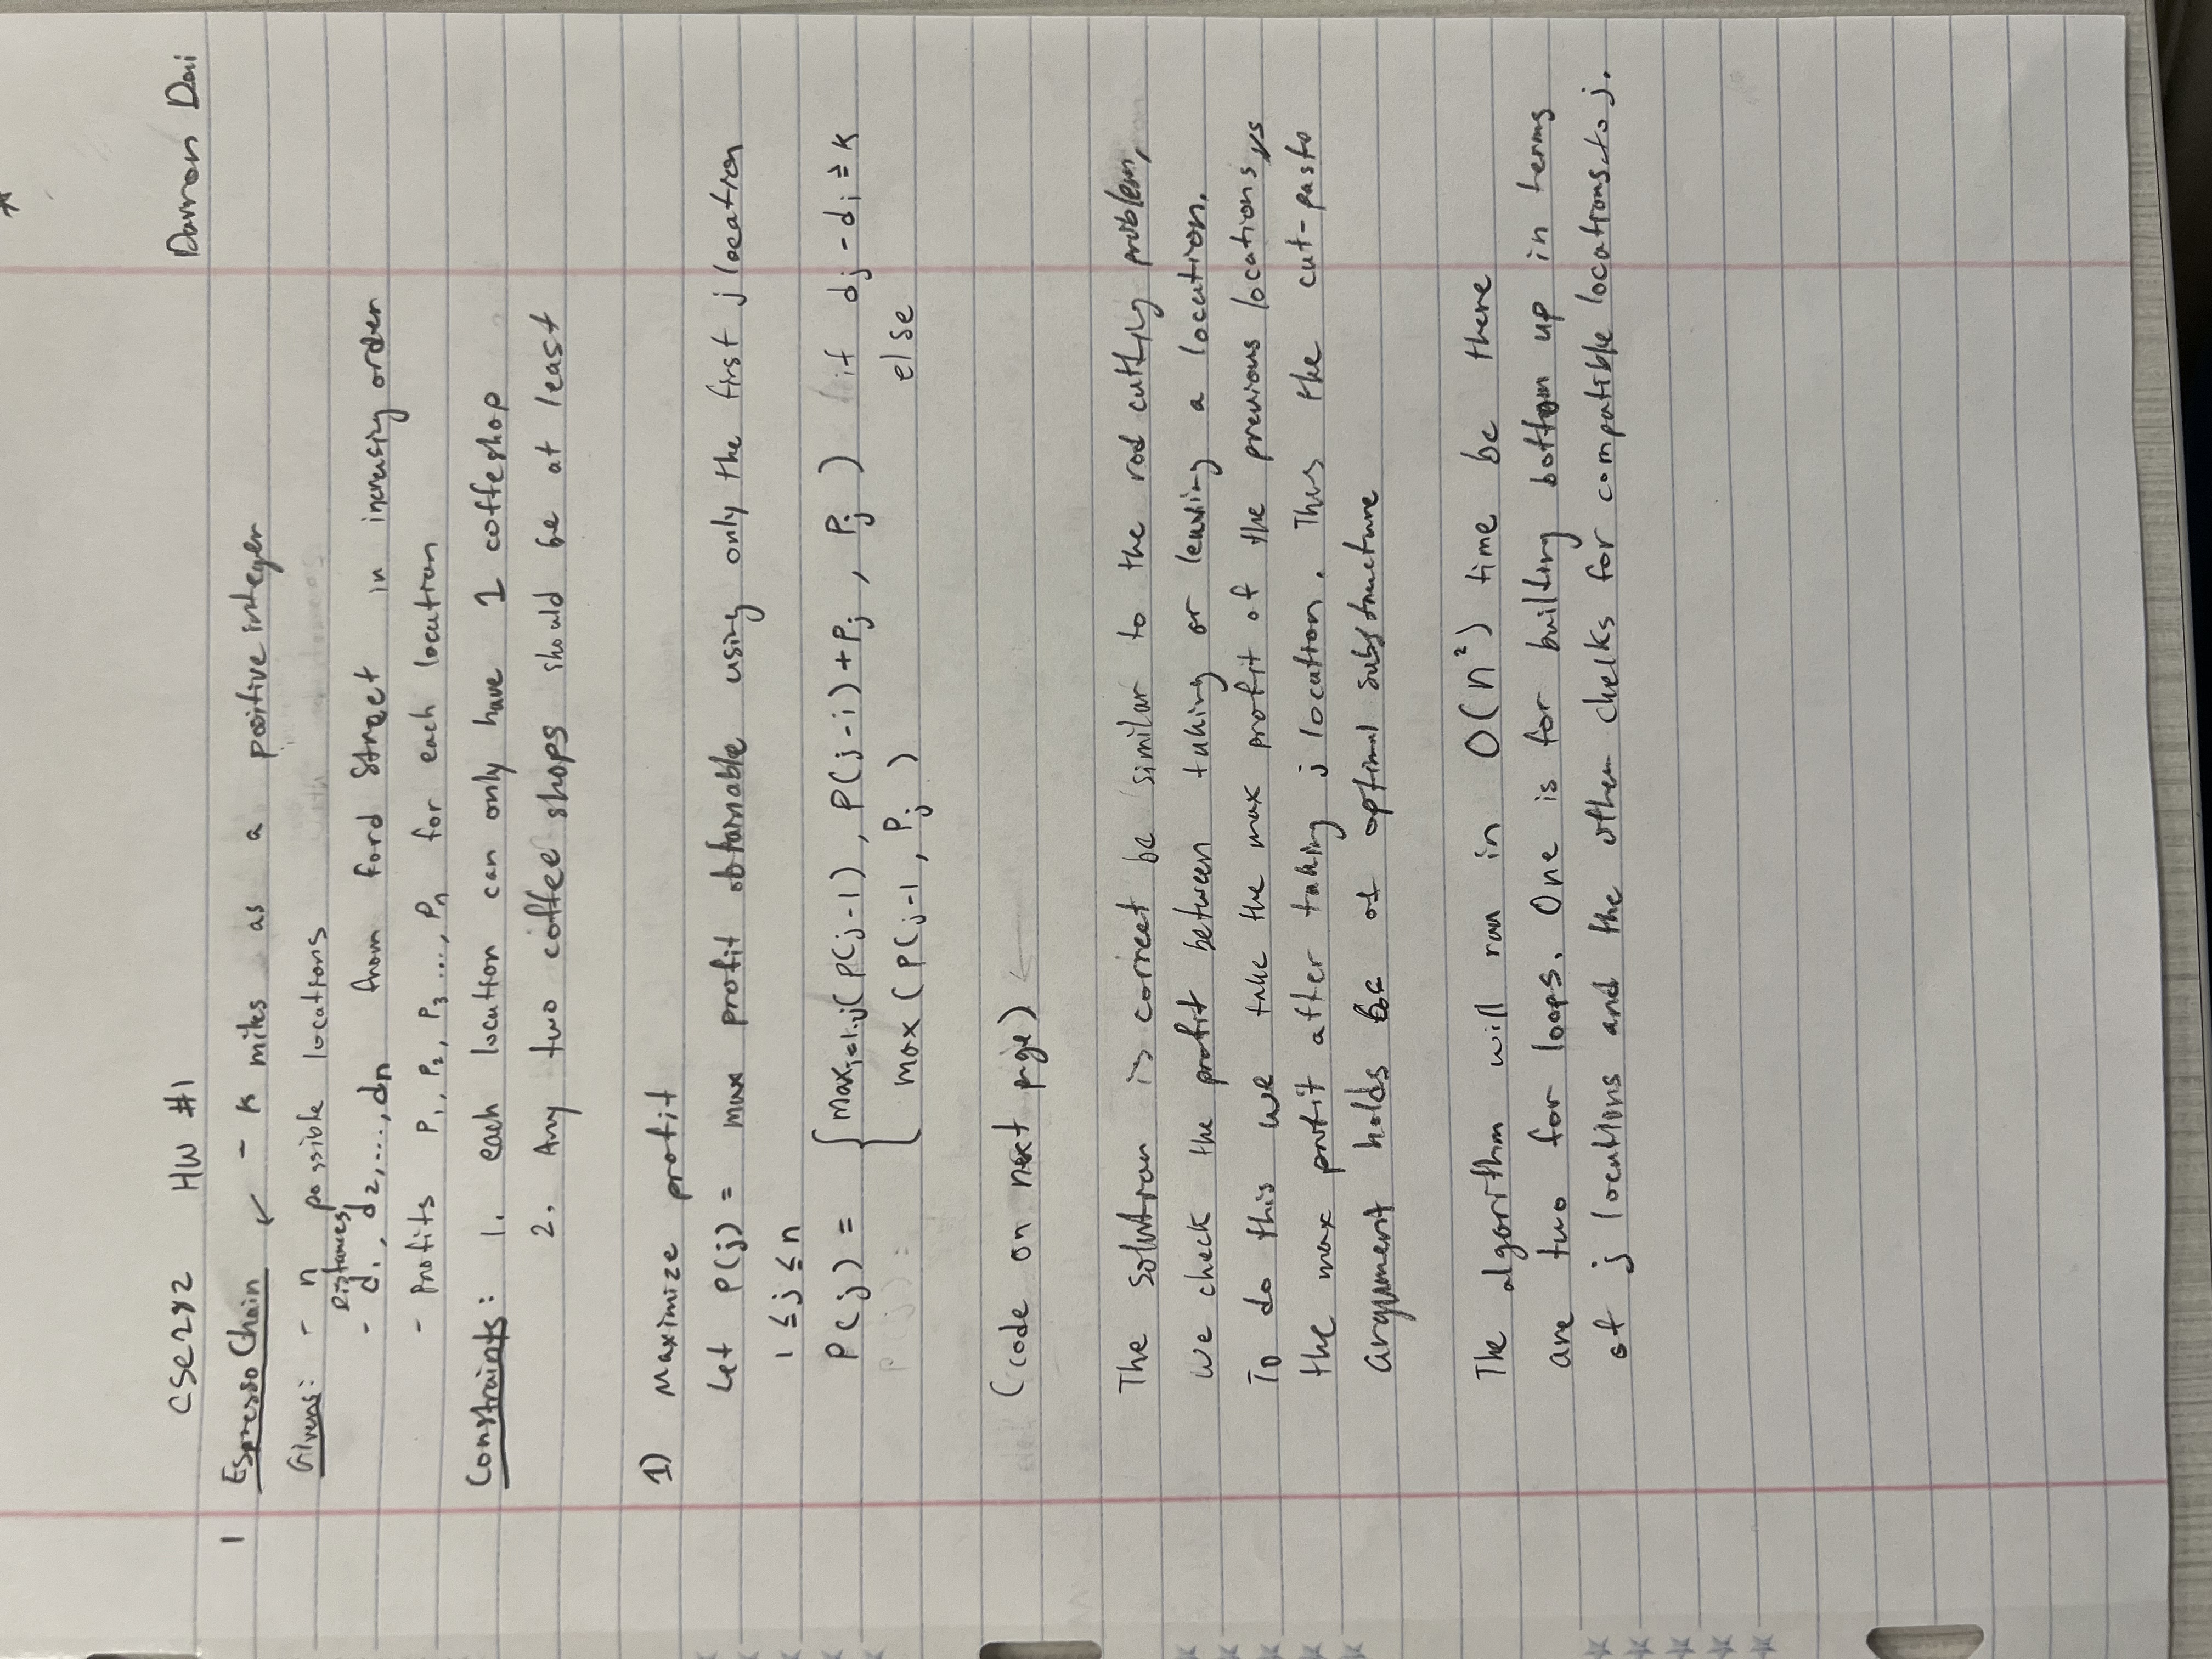 CSE282 HW #1 Darron Dai
1 Espresso Chain ↙ - K miles as a positive integer
Givens: - n possible locations
Distances
- d1, d2,..., dn from Ford Street in increasing order
- Profits P1, P2, P3 ..., Pn for each location
Constraints: 1. each location can only have 1 coffeshop
2. Any two coffee shops should be at least
1) Maximize profit
Let P(j) = max profit obtainable using only the first j location
1 ≤ j ≤ n
P(j) = { max i=1..j ( P(j-1), P(j-i)+Pj , Pj ) if dj - di ≥ K
max ( P(j-1 , Pj ) else
(code on next page) ←
The solution is correct bc similar to the rod cutting problem,
we check the profit between taking or leaving a location.
To do this we take the max profit of the previous locations vs
the max profit after taking j location. Thus the cut-paste
argument holds bc of optimal substructure
The algorithm will run in O(n²) time bc there
are two for loops. One is for builting bottom up in terms
of j locations and the other checks for compatible locations to j.